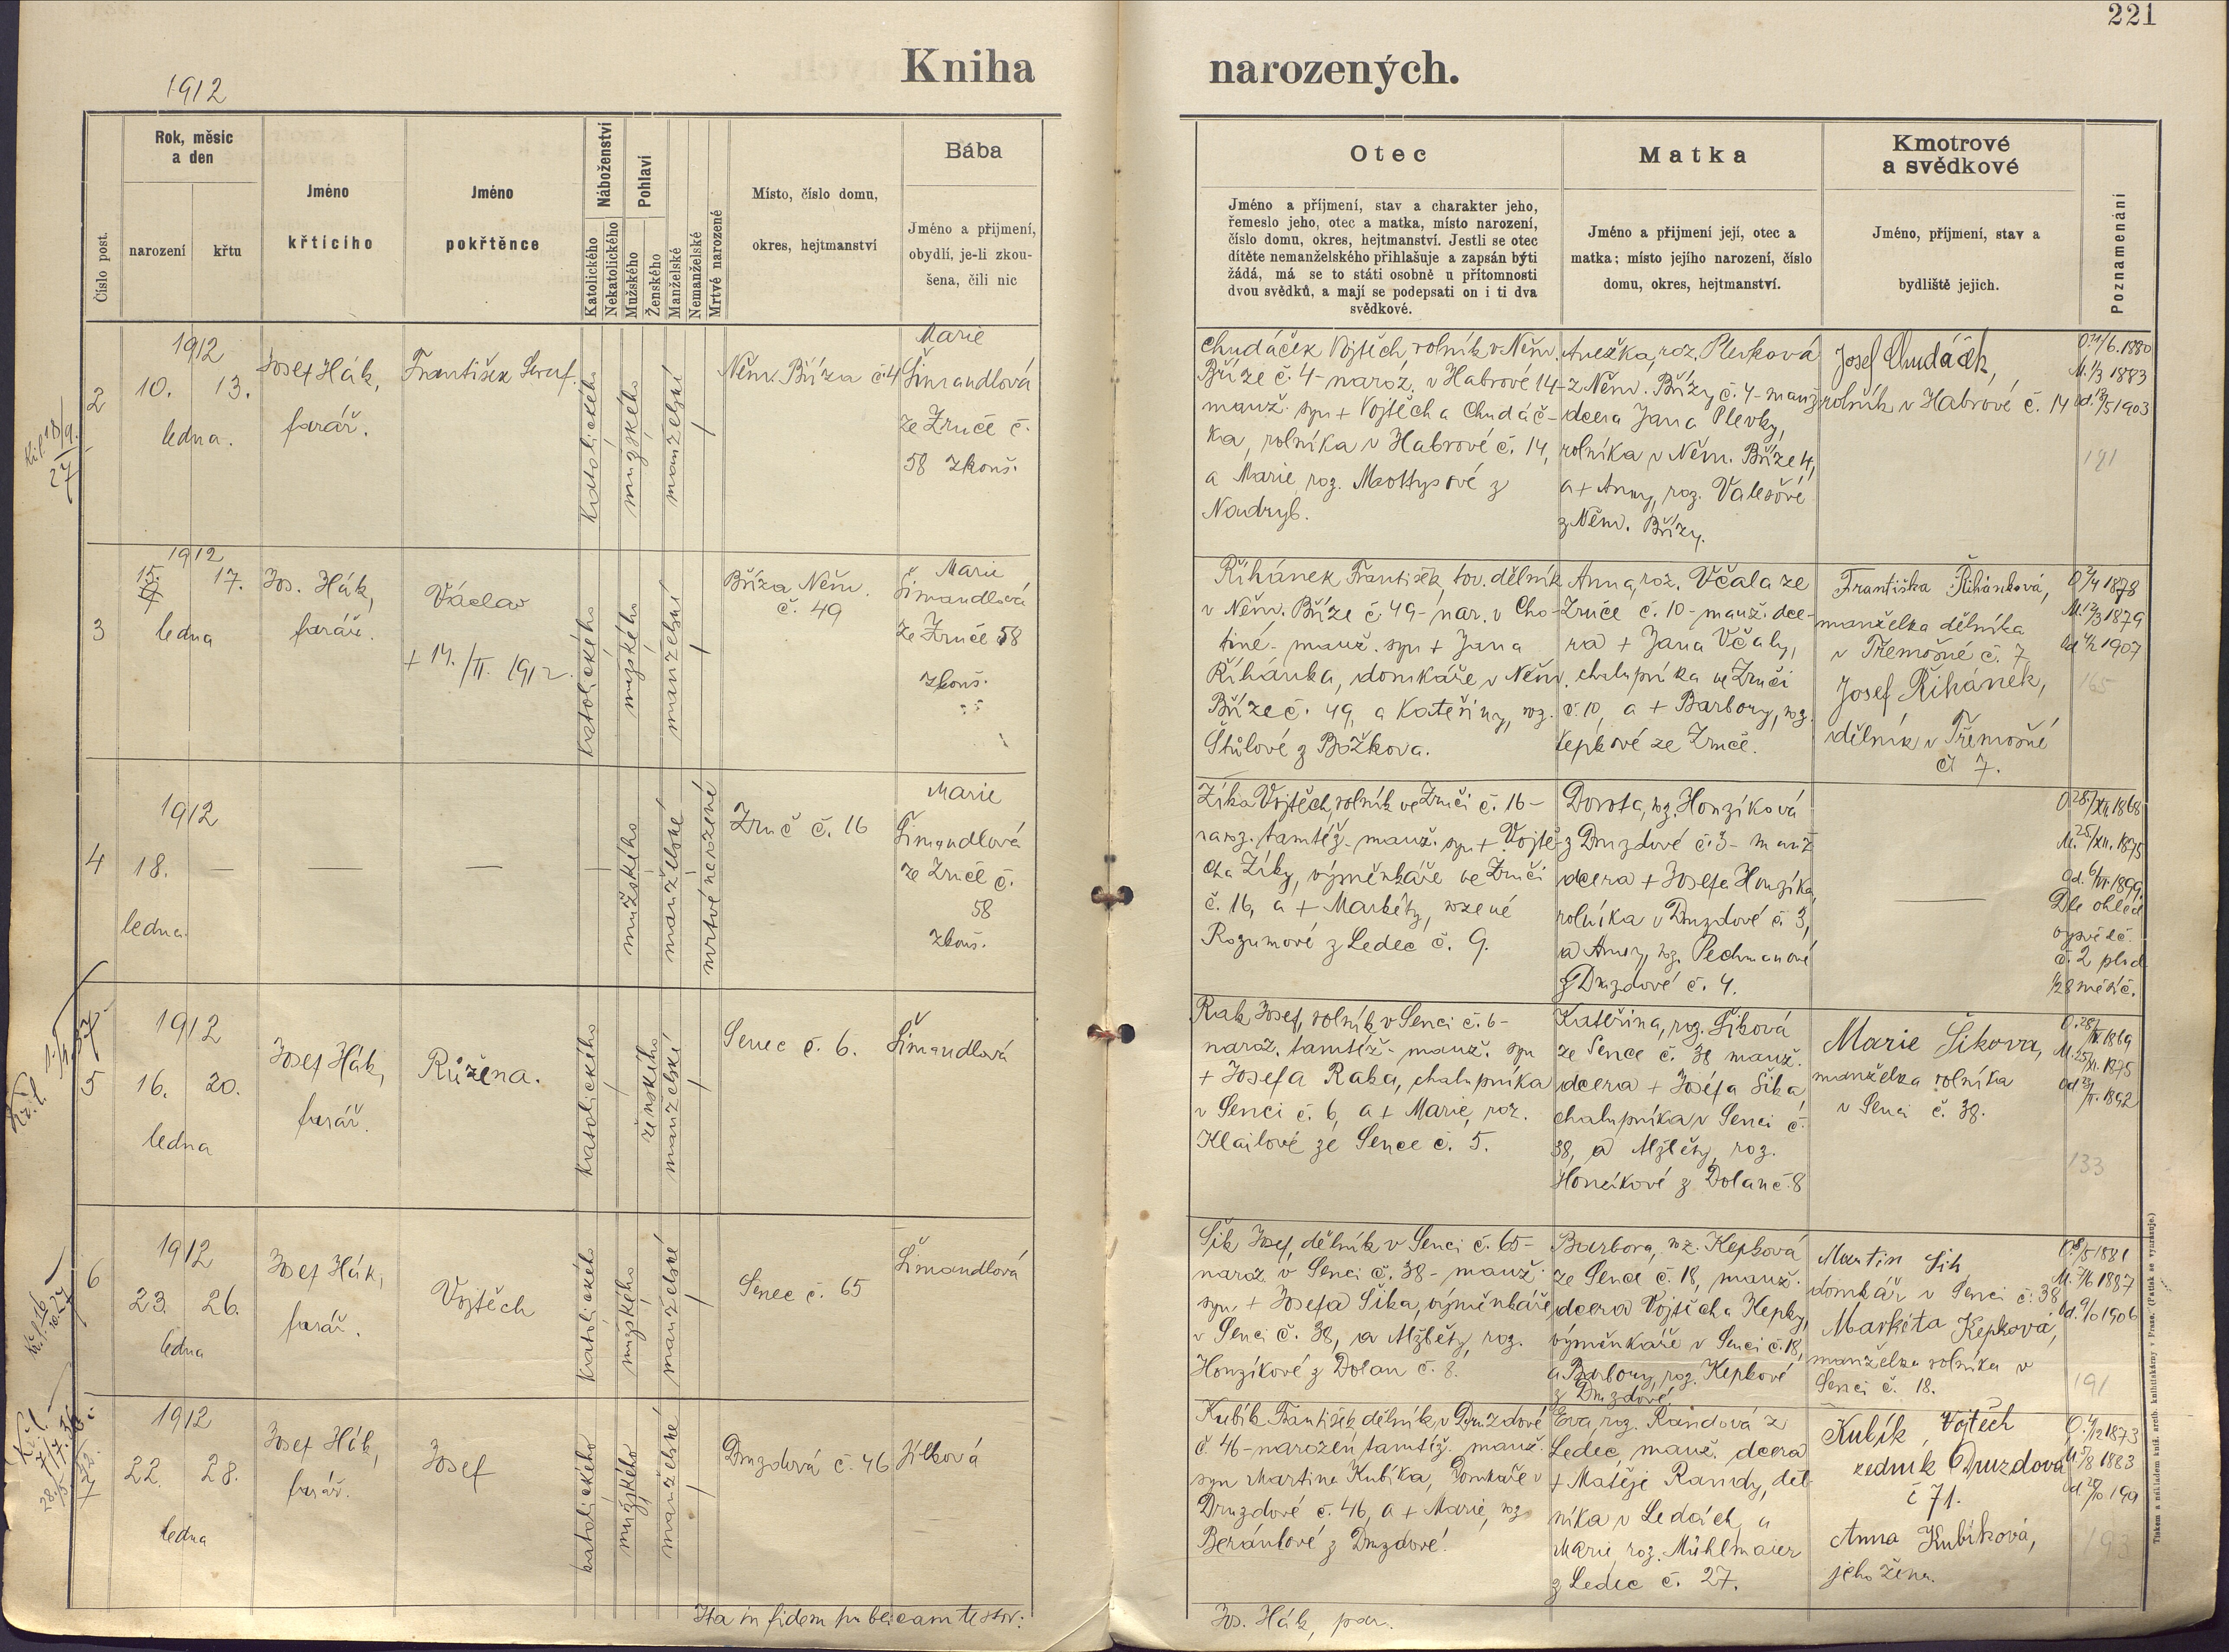 221
Kniha narozených.
1912
Číslo post.
Rok, měsíc
a den
narození
křtu
Jméno
křtícího
Jméno
pokřtěnce
Náboženství
Katolického
Nekatolického
Pohlaví
Mužského
Ženského
Manželské
Nemanželské
Mrtvě narozené
Místo, číslo domu,
okres, hejtmanství
Bába
Jméno a příjmení,
obydlí, je-li zkou-
šena, čili nic
Otec
Jméno a příjmení, stav a charakter jeho,
řemeslo jeho, otec a matka, místo narození,
číslo domu, okres, hejtmanství. Jestli se otec
dítěte nemanželského přihlašuje a zapsán býti
žádá, má se to státi osobně u přítomnosti
dvou svědků, a mají se podepsati on i ti dva
svědkové.
Matka
Jméno a příjmení její, otec a
matka; místo jejího narození, číslo
domu, okres, hejtmanství.
Kmotrové
a svědkové
Jméno, příjmení, stav a
bydliště jejich.
Poznamenání
2
1912
10. 13.
ledna.
Josef Hák,
farář.
František Seraf.
katolického
mužského
manželské
Něm. Bříza č. 4
Marie
Šimandlová
ze Zruče č.
58 zkouš.
Chudáček Vojtěch, rolník v Něm.
Bříze č. 4 - naroz. v Habrové 14 -
manž. syn + Vojtěcha Chudáč-
ka, rolníka v Habrové č. 14,
a Marie, roz. Mottysové z
Nadryb.
Anežka, roz. Plevková
z Něm. Břízy č. 4 - manž.
dcera Jana Plevky,
rolníka v Něm. Bříze 4,
a + Anny, roz. Valešové
z Něm. Břízy.
Josef Chudáček,
rolník v Habrové č. 14
O. 4/6. 1880
M. 1/3 1883
od. 12/5 1903
191
3
1912
15. 17.
ledna
Jos. Hák,
farář.
Václav
+ 14./II. 1912.
katolického
mužského
manželské
Bříza Něm.
č. 49
Marie
Šimandlová
ze Zruče 58
zkouš.
Řihánek František, tov. dělník
v Něm. Bříze č. 49 - nar. v Cho-
tiné - manž. syn + Jana
Řihánka, domkáře v Něm.
Bříze č. 49, a Kateřiny, roz.
Štůlové z Božkova.
Anna, roz. Včala ze
Zruče č. 10 - manž. dce-
ra + Jana Včaly,
chalupníka ve Zruči
č. 10, a + Barbory, roz.
Kepkové ze Zruče.
Františka Řihánková,
manželka dělníka
v Třemošné č. 7
Josef Řihánek,
dělník v Třemošné
č 7.
O 2/4 1878
M. 12/3 1879
1907
165
4
1912
18. —
ledna
— —
mužského
manželské
mrtvě narozené
Zruč č. 16
Marie
Šimandlová
ze Zruče č.
58
zkouš.
Zíka Vojtěch, rolník ve Zruči č. 16 -
naroz. tamtéž - manž. syn + Vojtě-
cha Zíky, výměnkáře ve Zruči
č. 16, a + Markéty, rozené
Rozumové z Ledec č. 9.
Dorota, roz. Honzíková
z Druzdové č. 3 - manž
dcera + Josefa Honzíka,
rolníka v Druzdové č. 3,
a Anny, roz. Pechmanové
z Druzdové č. 4.
—
O 28/XII. 1868
M. 25/XII. 1875
od. 6/VI. 1899.
Dle ohled.
vysvědč.
č. 2 plod
1/2 8 měsíč.
5
1912
16. 20.
ledna
Josef Hák,
farář.
Růžena.
katolického
ženského
manželské
Senec č. 6.
Šimandlová
Rak Josef, rolník v Senci č. 6 -
naroz. tamtéž - manž. syn
+ Josefa Raka, chalupníka
v Senci č. 6, a + Marie, roz.
Klailové ze Sence č. 5.
Kateřina, roz. Šiková
ze Sence č. 38 manž.
dcera + Josefa Šika,
chalupníka v Senci č.
38, a Alžběty, roz.
Honzíkové z Dolan č. 8
Marie Šikova,
manželka rolníka
v Senci č. 38.
1869
1875
1892
133
6
1912
23. 26.
ledna
Josef Hák,
farář.
Vojtěch
katolického
mužského
manželské
Senec č. 65
Šimandlová
Šik Josef, dělník v Senci č. 65 -
naroz. v Senci č. 38 - manž.
syn + Josefa Šika, výměnkáře
v Senci č. 38, a Alžběty, roz.
Honzíkové z Dolan č. 8.
Barbora, roz. Kepková
ze Sence č. 18, manž.
dcera Vojtěcha Kepky,
výměnkáře v Senci č. 18,
a Barbory, roz. Kepkové
z Druzdové.
Martin Šik
domkář v Senci č. 38
Markéta Kepková,
manželka rolníka v
Senci č. 18.
1881
1887
1906
191
7
1912
22. 28.
ledna
Josef Hák,
farář.
Josef
katolického
mužského
manželské
Druzdová č. 46
Jílková
Kubík František, dělník v Druzdové
č. 46 - narozen tamtéž - manž.
syn Martina Kubíka, domkáře v
Druzdové č. 46, a + Marie, roz.
Beránkové z Druzdové.
Eva, roz. Randová z
Ledec, manž. dcera
+ Matěje Randy, děl-
níka v Ledcích, a
Marie, roz. Mühlmaier
z Ledec č. 27.
Kubík Vojtěch
zedník Druzdová
č 71.
Anna Kubíková,
jeho žena.
1873
1883
193
Ita in fidem publicam testor:
Jos. Hák, par.